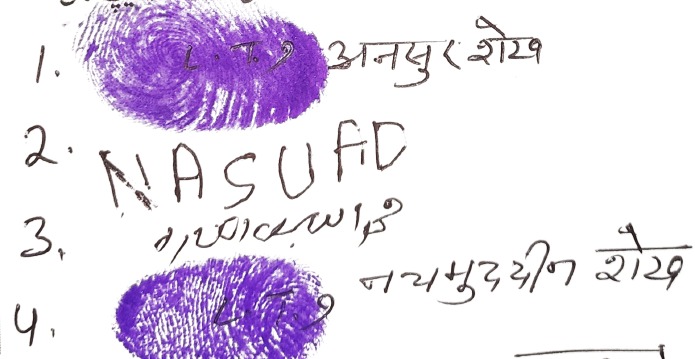 1. L.T.१ अनसुर शेख
2. NASUAD
3.
4. L.T.१ नयमुददीन शेख